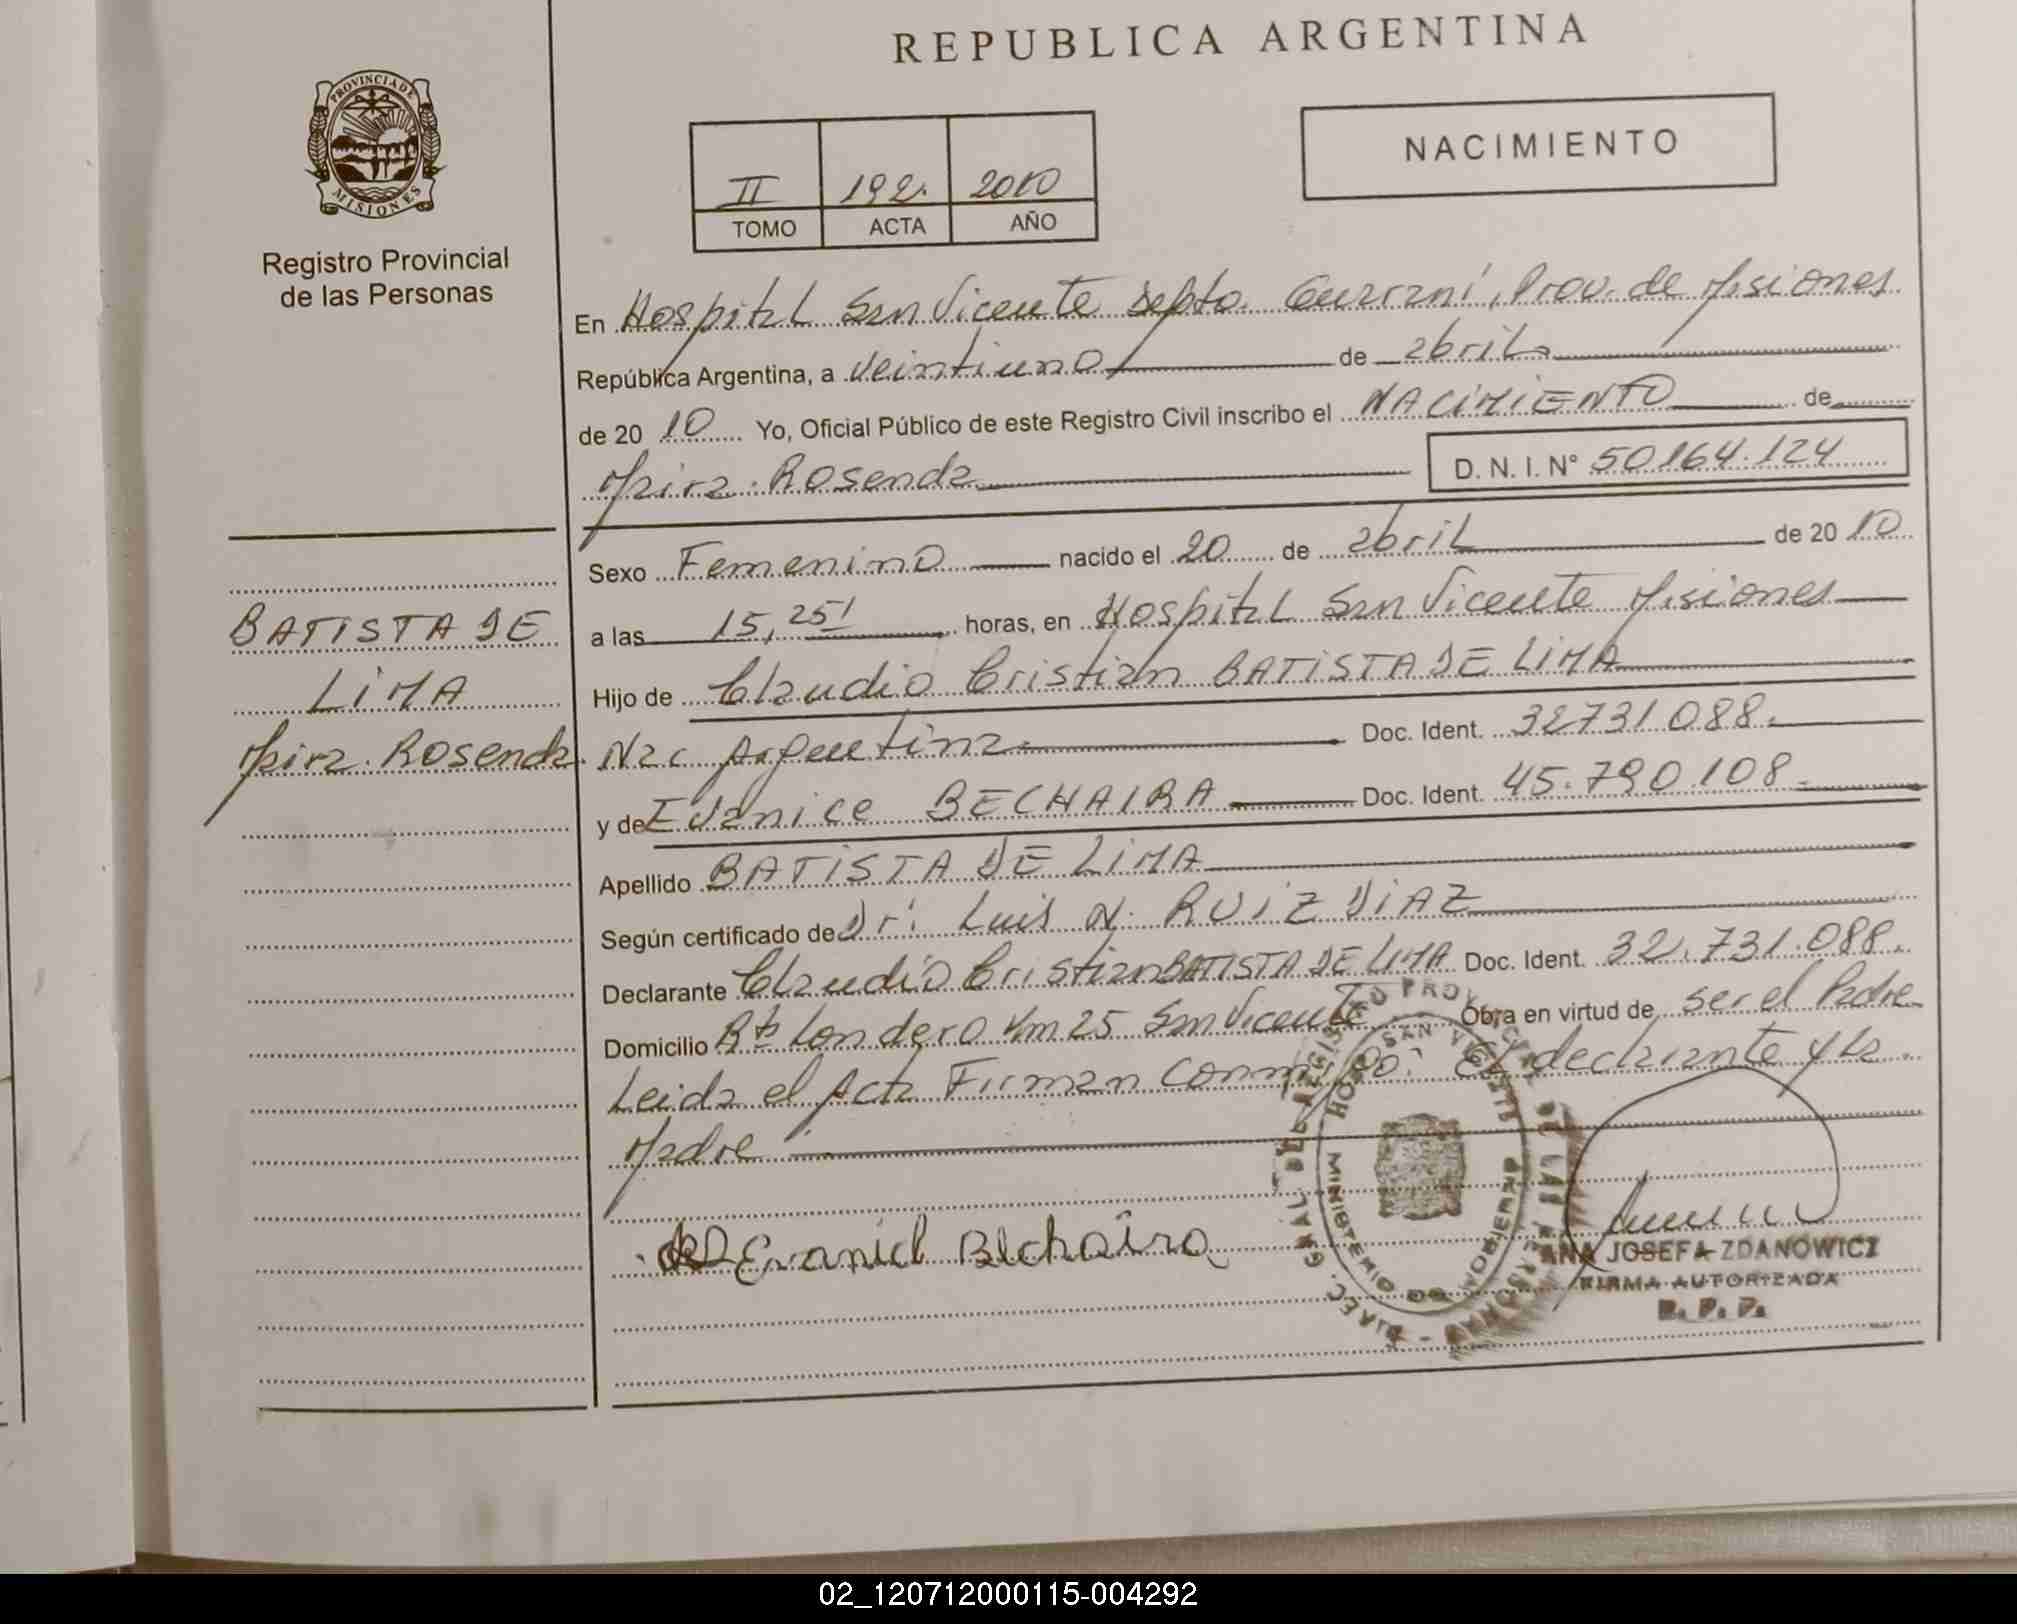 REPUBLICA ARGENTINA
PROVINCIA DE
MISIONES
Registro Provincial
de las Personas
II 192. 2010
TOMO ACTA AÑO
NACIMIENTO
En Hospital San Vicente Depto. Guaraní, Prov. de Misiones
República Argentina, a veintiuno de abril
de 2010 Yo, Oficial Público de este Registro Civil inscribo el NACIMIENTO de
Maira Rosenda D. N. I. N° 50164.124
Sexo Femenino nacido el 20 de abril de 2010
a las 15,25' horas, en Hospital San Vicente Misiones
Hijo de Claudio Cristian BATISTA DE LIMA
Nac Argentina Doc. Ident. 32731.088.
y de Evanice BECHAIRA Doc. Ident. 45.790.108.
Apellido BATISTA DE LIMA
Según certificado de Dr. Luis N. RUIZ DIAZ
Declarante Claudio Cristian BATISTA DE LIMA Doc. Ident. 32.731.088.
Domicilio Londero Km 25 San Vicente Obra en virtud de ser el Padre
Leida el Acta Firman conmigo: El declarante y la
Madre
BATISTA DE
LIMA
Maira Rosenda
Bechaira
HOSP. SAN VICENTE
MINISTERIO DE GOBIERNO
ANA JOSEFA ZDANOWICZ
FIRMA AUTORIZADA
R. P. P.
02_120712000115-004292